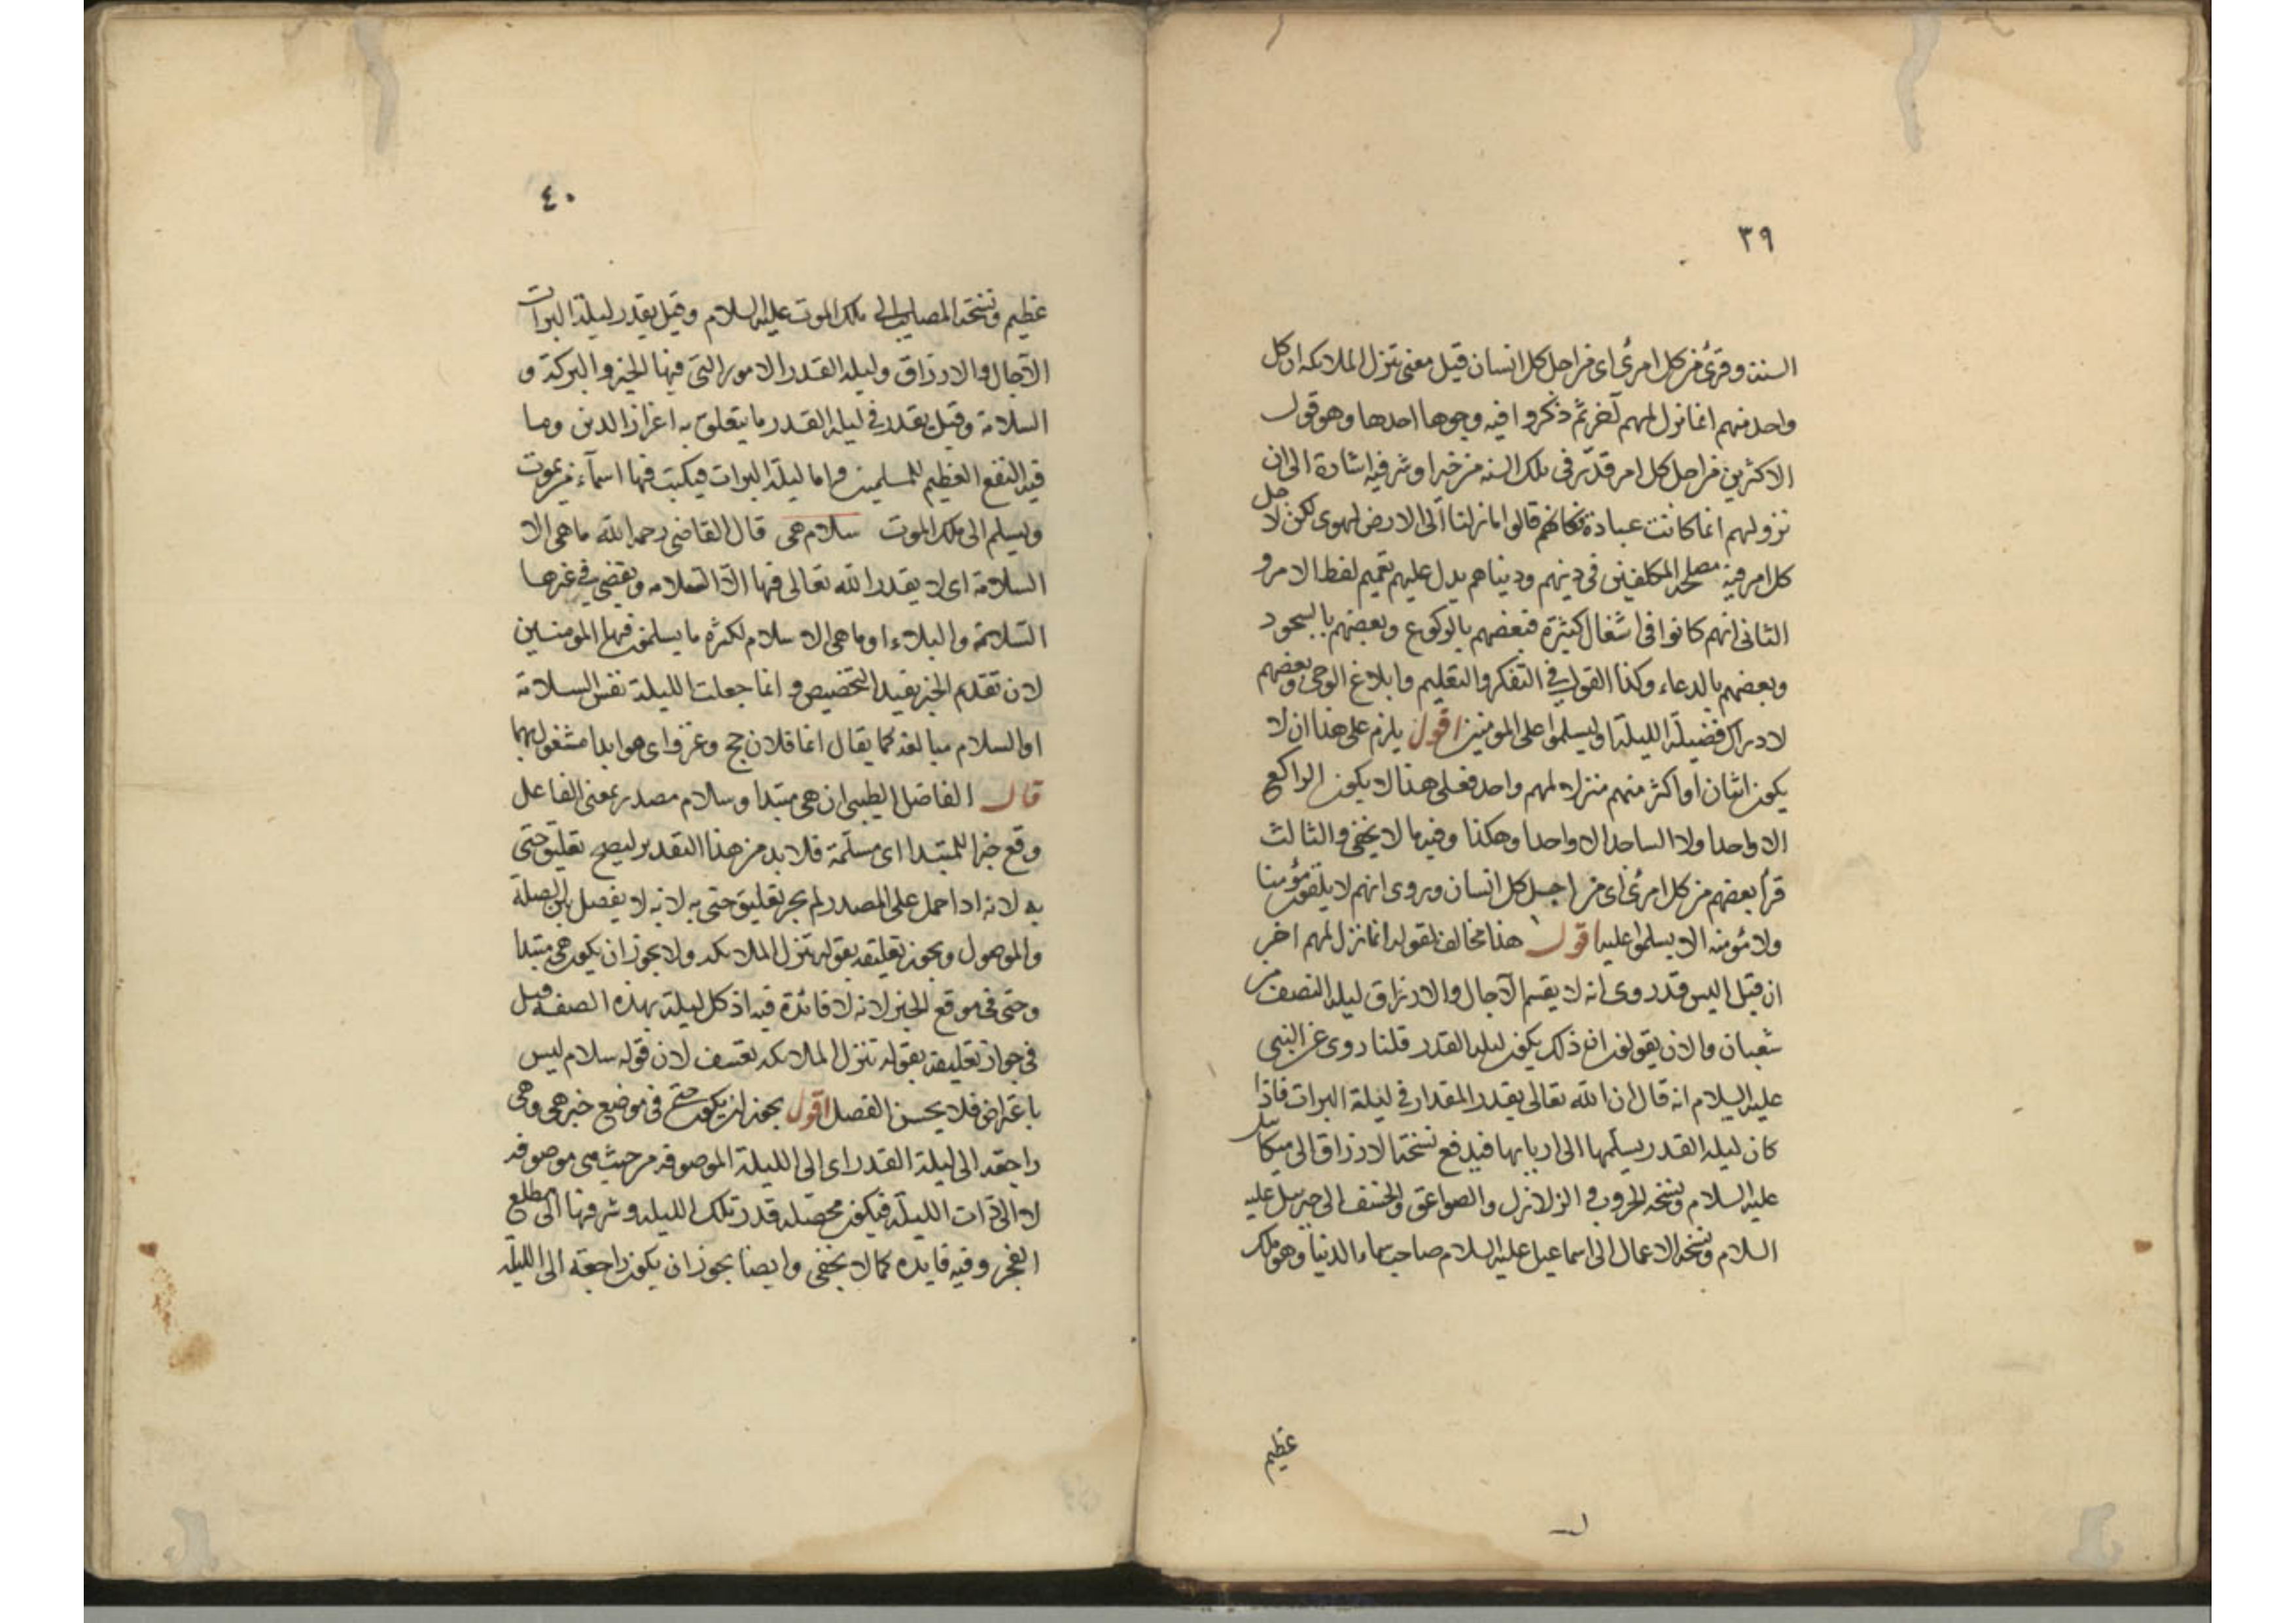 ٣٩
السنة وقرئ من كل امرئ اى من اجل كل انسان قيل معنى تنزل الملائكة ان كل
واحد منهم انما نزل لمهم آخر ثم ذكروا فيه وجوها احدها وهو قول
الاكثرين من اجل كل امر قدّر فى تلك السنه من خير او شر فيه اشارة الى ان
نزولهم انما كانت عبادة فكانهم قالوا ما نزلنا الى الارض لهوى لكن لاجل
كل امر فيه مصلحة المكلفين فى دينهم ودنياهم يدل عليهم تعميم لفظ الامر و
الثانى انهم كانوا فى اشغال كثيرة فبعضهم بالركوع وبعضهم بالسجود
وبعضهم بالدعاء وكذا القول فى التفكر والتعليم وابلاغ الوحى وبعضهم
لادراك فضيلة الليلة او ليسلموا على المومنين اقول يلزم على هذا ان لا
يكون اثنان او اكثر منهم منزلا لمهم واحد فعلى هذا لا يكون الراكع
الا واحدا ولا الساجد الا واحدا وهكذا وفيه ما لا يخفى والثالث
قرأ بعضهم من كل امرئ اى من اجل كل انسان وروى انهم لا يلقون مؤمنا
ولا مؤمنه الا يسلموا عليه اقول هذا مخالف لقوله انما نزل لمهم اخر
ان قيل اليس قد روى انه لا يقسم الآجال والارزاق ليلة النصف من
شعبان والان يقولون ان ذلك يكون ليلة القدر قلنا روى عن النبى
عليه السلام انه قال ان الله تعالى يقدر المقدار فى ليلة البرات فاذا
كان ليلة القدر يسلمها الى اربابها فيدفع نسخة الارزاق الى ميكائيل
عليه السلام ونسخة الحروب و الزلازل والصواعق والخسف الى جبريل عليه
السلام ونسخة الاعمال الى اسماعيل عليه السلام صاحب سماء الدنيا وهو ملك
عظيم
٤٠
عظيم ونسخة المصايب الى ملك الموت عليه السلام وقيل يقدر ليلة البرات
الآجال والارزاق وليلة القدر الامور التى فيها الخير والبركة و
السلامة وقيل يقدر فى ليلة القدر ما يتعلق به اعزاز الدين وما
فيه النفع العظيم للمسلمين واما ليلة البرات فيكتب فيها اسماء من يموت
ويسلم الى ملك الموت سلام هى قال القاضى رحمه الله ما هى الا
السلامة اى لا يقدر الله تعالى فيها الا السلامه ويقضى فى غيرها
السلامة والبلاء او ما هى الا سلام لكثرة ما يسلمون فيها المومنين
لان تقديم الخبر يفيد التخصيص و انما جعلت الليلة نفس السلامة
او السلام مبالغة كما يقال انما فلان حج وغزو اى هو ابدا مشغول بهما
قال الفاضل الطيبى ان هى مبتدا وسلام مصدر بمعنى الفاعل
وقع خبرا للمبتدا اى مسلّمة فلا بد من هذا التقدير ليصح تعليق حتى
به لانه اذا حمل على المصدر لم يجز تعليق حتى به لانه لا يفصل بين الصلة
والموصول ويجوز تعليقه بقوله تنزل الملائكه ولا يجوز ان يكون هى مبتدا
وحتى فى موقع الخبر لانه لا فائدة فيه اذ كل ليلة بهذه الصفة قيل
فى جواز تعليقه بقوله تنزل الملائكه تعسف لان قوله سلام ليس
باعتراض فلا يحسن الفصل اقول يجوز ان يكون حتى فى موضع خبر هى وهى
راجعة الى ليلة القدر اى الى الليلة الموصوفه من حيث هى موصوفه
لا الى ذات الليلة فيكون محصله قدر تلك الليله وشرفها الى مطلع
الفجر وفيه فايده كما لا يخفى وايضا يجوز ان يكون راجعة الى الليلة